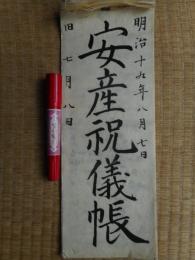 明治十九年八月七日
安産祝儀帳
旧七月八日